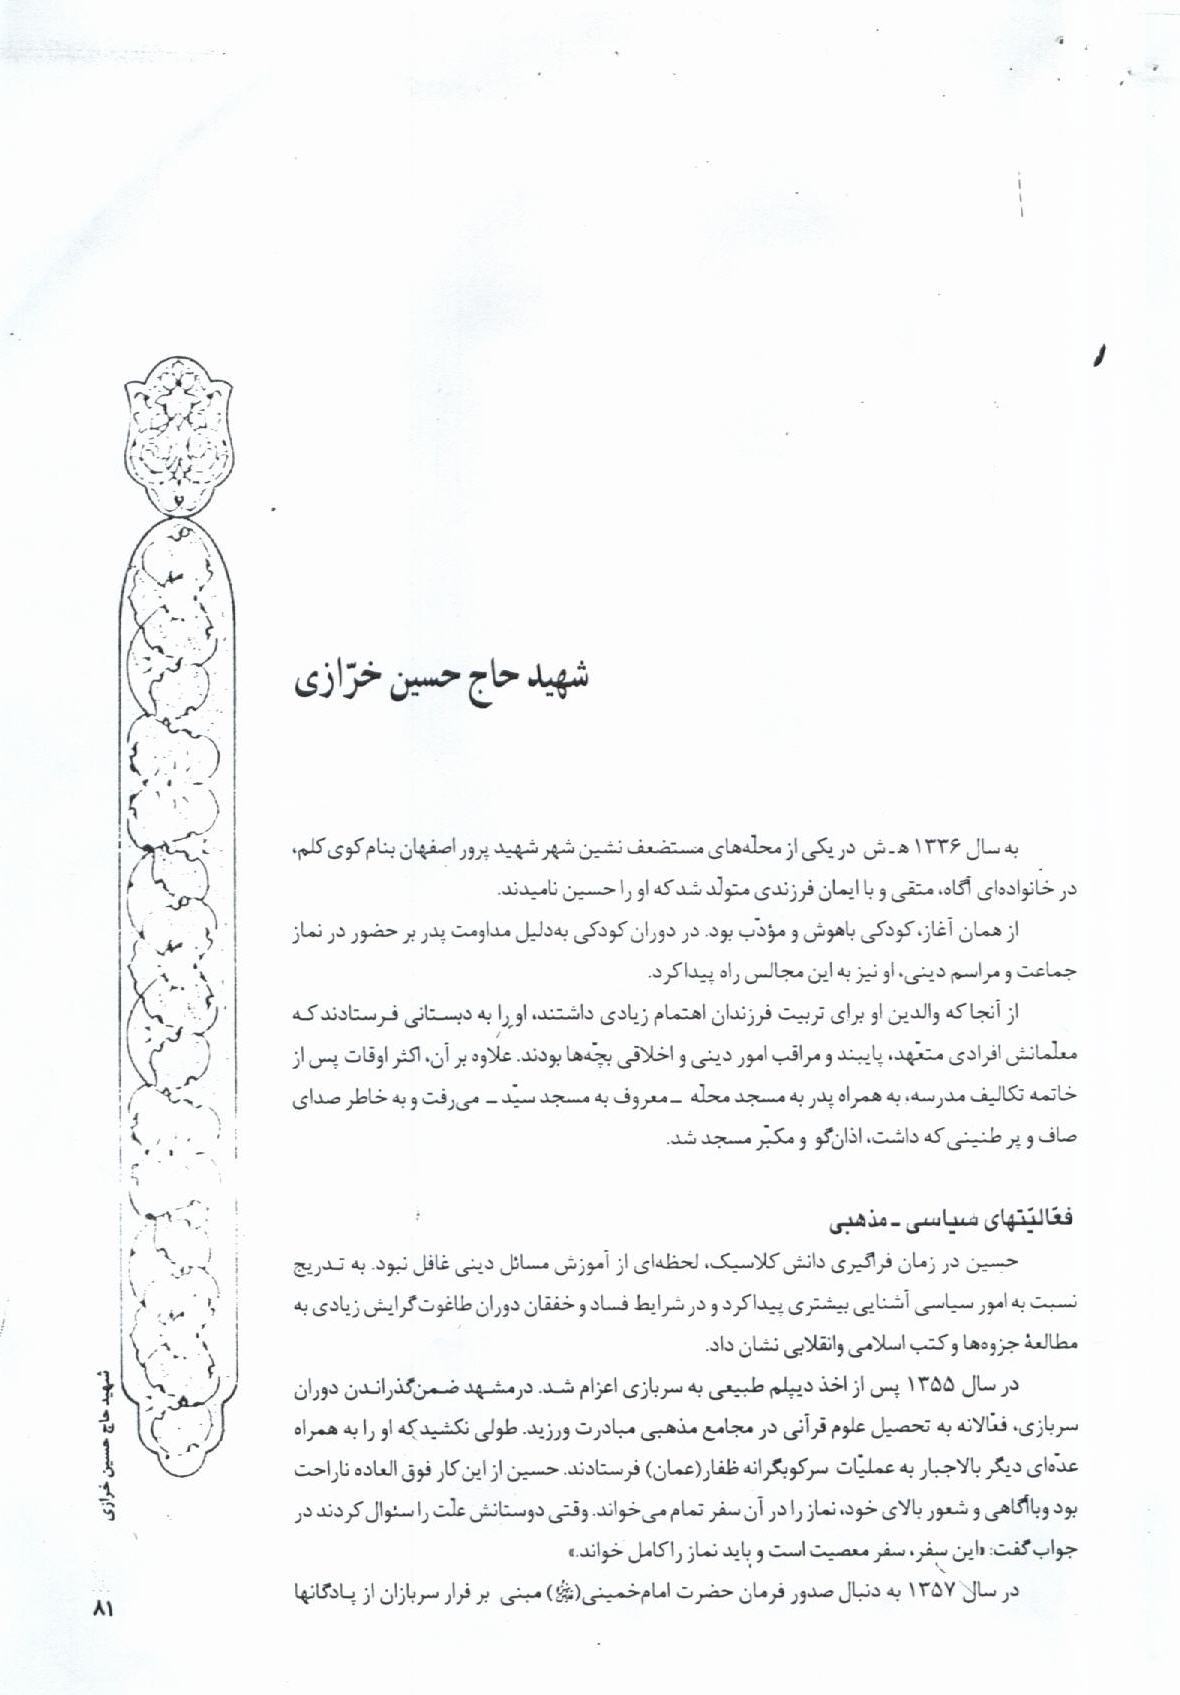 شهید حاج حسین خرّازی
به سال ۱۳۳۶ هـ ـ ش در یکی از محلّه‌های مستضعف نشین شهر شهید پرور اصفهان بنام کوی کلم،
در خانواده‌ای آگاه، متقی و با ایمان فرزندی متولّد شد که او را حسین نامیدند.
از همان آغاز، کودکی باهوش و مؤدّب بود. در دوران کودکی به‌دلیل مداومت پدر بر حضور در نماز
جماعت و مراسم دینی، او نیز به این مجالس راه پیدا کرد.
از آنجا که والدین او برای تربیت فرزندان اهتمام زیادی داشتند، او را به دبستانی فرستادند که
معلّمانش افرادی متعّهد، پایبند و مراقب امور دینی و اخلاقی بچّه‌ها بودند. علاوه بر آن، اکثر اوقات پس از
خاتمه تکالیف مدرسه، به همراه پدر به مسجد محلّه ـ معروف به مسجد سیّد ـ می‌رفت و به خاطر صدای
صاف و پر طنینی که داشت، اذان‌گو و مکبّر مسجد شد.
فعّالیّتهای سیاسی ـ مذهبی
حسین در زمان فراگیری دانش کلاسیک، لحظه‌ای از آموزش مسائل دینی غافل نبود. به تدریج
نسبت به امور سیاسی آشنایی بیشتری پیدا کرد و در شرایط فساد و خفقان دوران طاغوت گرایش زیادی به
مطالعهٔ جزوه‌ها و کتب اسلامی وانقلابی نشان داد.
در سال ۱۳۵۵ پس از اخذ دیپلم طبیعی به سربازی اعزام شد. درمشهد ضمن‌گذراندن دوران
سربازی، فعّالانه به تحصیل علوم قرآنی در مجامع مذهبی مبادرت ورزید. طولی نکشید که او را به همراه
عدّه‌ای دیگر بالاجبار به عملیّات سرکوبگرانه ظفار(عمان) فرستادند. حسین از این‌کار فوق العاده ناراحت
بود وباآگاهی و شعور بالای خود، نماز را در آن سفر تمام می‌خواند. وقتی دوستانش علّت را سئوال کردند در
جواب گفت: «این سفر، سفر معصیت است و باید نماز را کامل خواند.»
در سال ۱۳۵۷ به دنبال صدور فرمان حضرت امام‌خمینی() مبنی بر فرار سربازان از پادگانها
شهید حاج حسین خرازی
۸۱